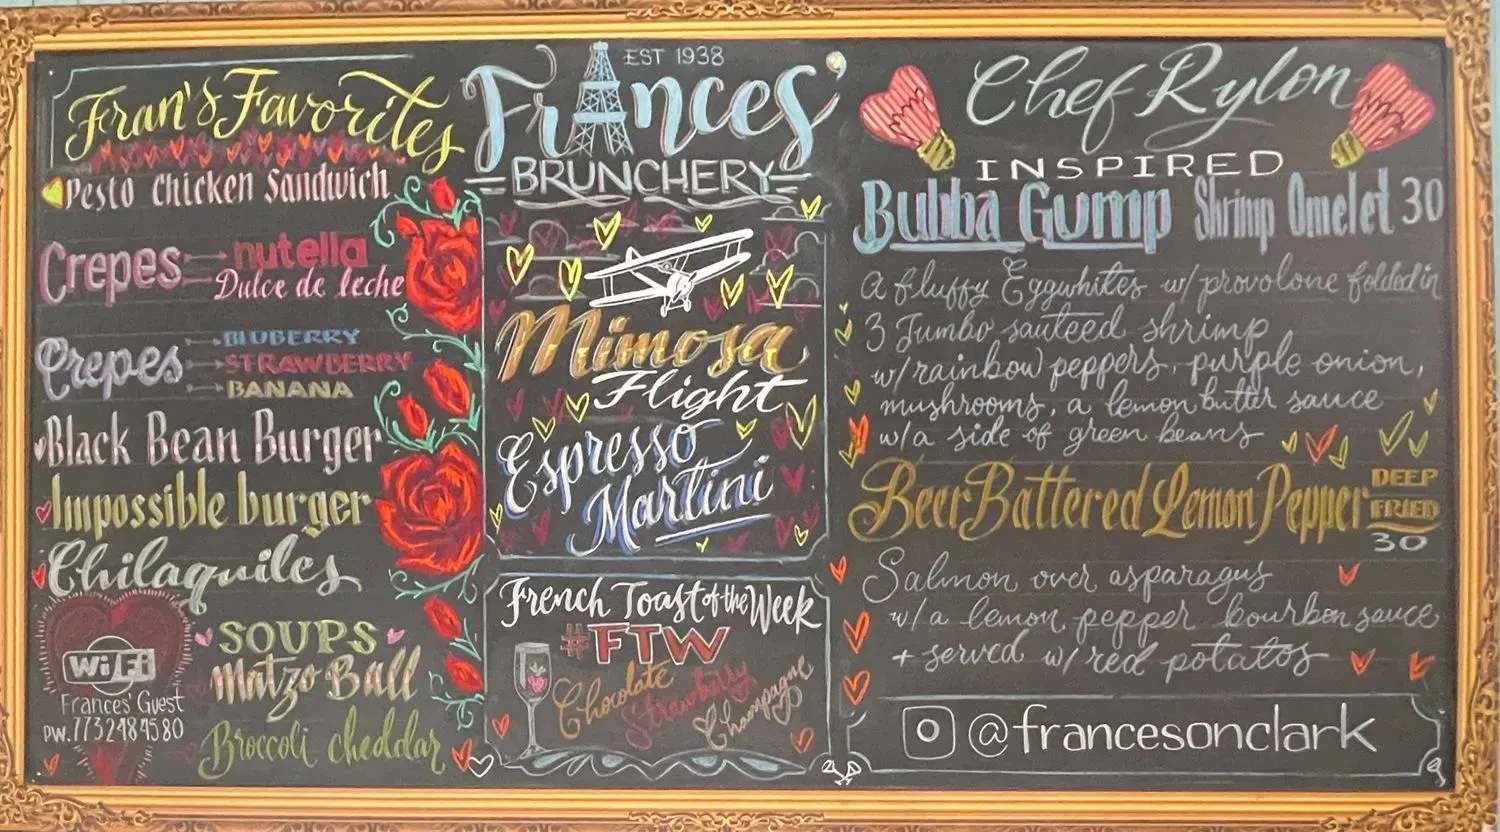 Fran's Favorites
Pesto chicken Sandwich
Crepes nutella
Dulce de leche
Crepes BLUBERRY
STRAWBERRY
BANANA
Black Bean Burger
Impossible burger
Chilaquiles
WiFi
Frances' Guest
PW.7732484580
SOUPS
Matzo Ball
Broccoli cheddar
EST 1938
Frances'
BRUNCHERY
Mimosa
Flight
Espresso
Martini
French Toast of the Week
#FTW
Chocolate
Strawberry
Champagne
Chef Rylon
INSPIRED
Bubba Gump Shrimp Omelet 30
A fluffy Eggwhites w/ provolone folded in
3 Jumbo sauteed shrimp
w/rainbow peppers, purple onion,
mushrooms, a lemon butter sauce
w/a side of green beans
Beer Battered Lemon Pepper DEEP
FRIED
30
Salmon over asparagus
w/a lemon pepper bourbon sauce
+ served w/ red potatos
@francesonclark